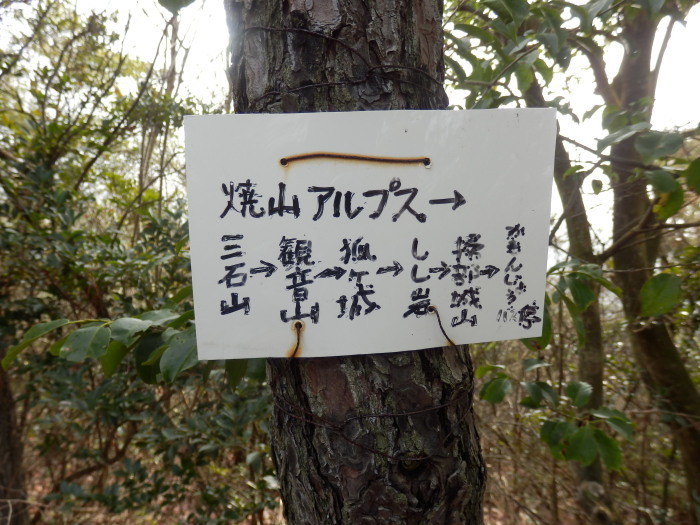 焼山アルプス→
三石山→観音山→狐ヶ城→しし岩→掃部城山→かもんじょう